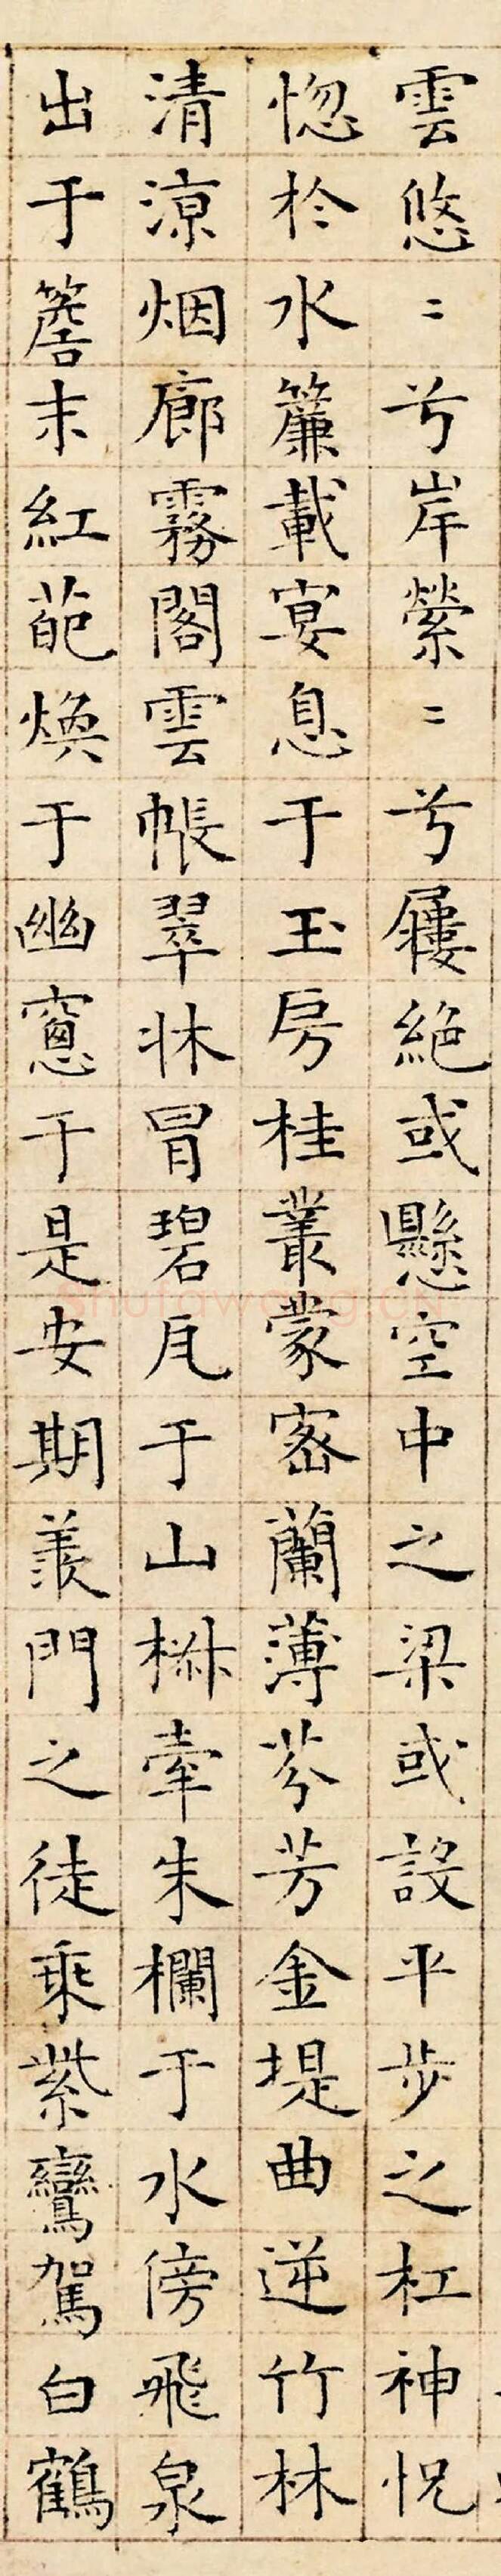 雲悠〻兮岸縈〻兮屢絕或懸空中之梁或設平步之杠神怳
惚於水簾載宴息于玉房桂叢蒙密蘭薄芬芳金堤曲逆竹林
清涼烟廊霧閣雲帳翠牀冒碧瓦于山椒牽朱欄于水傍飛泉
出于簷末紅葩煥于幽窻于是安期羨門之徒乘紫鸞駕白鶴
shufawang.cn